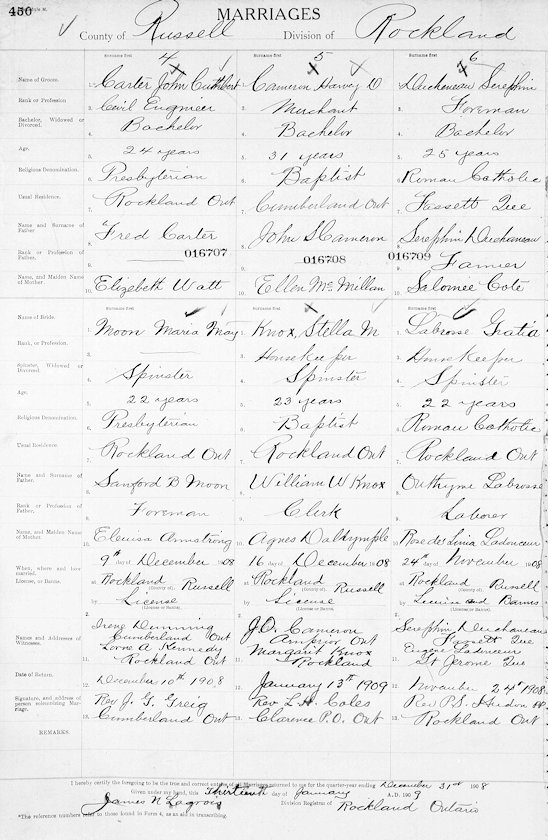 450
MARRIAGES
County of Russell Division of Rockland
4 5 6
Surname first Surname first Surname first
Name of Groom. 1. Carter John Cuthbert Cameron Harvey D Duchaneau Seraphin
Rank or Profession 2. Civil Engineer 2. Merchant 2. Foreman
Bachelor, Widowed or Divorced. 4. Bachelor 4. Bachelor 4. Bachelor
Age. 5. 24 years 5. 31 years 5. 25 years
Religious Denomination. 6. Presbyterian 6. Baptist 6. Roman Catholic
Usual Residence. 7. Rockland Ont 7. Cumberland Ont 7. Fassett Que
Name and Surname of Father 8. Fred Carter 8. John S Cameron 8. Seraphin Duchaneau
016707 016708 016709
Rank or Profession of Father. 9. 9. 9. Farmer
Name, and Maiden Name of Mother. 10. Elizabeth Watt 10. Ellen McMillan 10. Salomee Coté
Surname first Surname first Surname first
Name of Bride. 1. Moon Maria May 1. Knox, Stella M 1. Labrosse Gratia
Rank, or Profession. 3. 3. Housekeeper 3. Housekeeper
Spinster, Widowed or Divorced. 4. Spinster 4. Spinster 4. Spinster
Age. 5. 22 years 5. 23 years 5. 22 years
Religious Denomination. 6. Presbyterian 6. Baptist 6. Roman Catholic
Usual Residence. 7. Rockland Ont 7. Rockland Ont 7. Rockland Ont
Name and Surname of Father. 8. Sanford B Moon 8. William W Knox 8. Labrosse
Rank or Profession of Father. 9. Foreman 9. Clerk 9. Laborer
Name, and Maiden Name of Mother. 10. Armstrong 10. Agnes Dalrymple 10. Rose de Lima Ladouceur
When, where and how married. 9th day of December 1908 16 day of December 1908 24th day of November 1908
at Rockland (County of). Russell at Rockland (County of). Russell at Rockland (County of). Russell
License, or Banns. by License by License by License and Banns
(License or Banns). (License or Banns). (License or Banns).
Names and Addresses of Witnesses. Irene Dunning J.D. Cameron Seraphin Duchaneau
Cumberland Ont Arnprior Ont Fassett Que
Lorne A Kennedy Margaret Knox Eugene Ladouceur
Rockland Ont Rockland St Jerome Que
Date of Return. 12. December 10th 1908 12. January 13th 1909 12. November 24th 1908
Signature, and address of person solemnizing Marriage. Rev J. G. Greig Rev L. H. Coles Rev P.S. Hudon PP
13. Cumberland Ont 13. Clarence P.O. Ont 13. Rockland Ont
REMARKS.
I hereby certify the foregoing to be the true and correct entries of all Marriages returned to me for the quarter-year ending December 31st 1908
Given under my hand, this Thirteenth day of January A.D. 1909
James N Lagrois Division Registrar of Rockland Ontario
*The reference numbers refer to those found in Form 4, as an aid in transcribing.